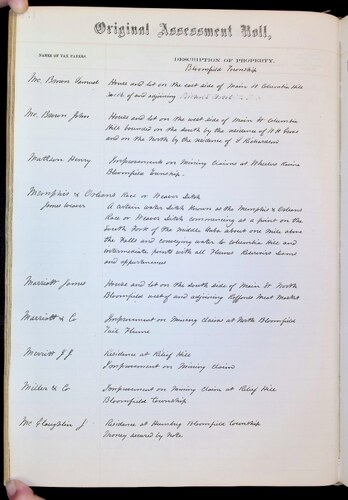 Original Assessment Roll,
NAMES OF TAX PAYERS.
DESCRIPTION OF PROPERTY.
Bloomfield Township
Mc. Bowen Samuel
House and lot on the east side of Main St Columbia Hill
north of and adjoining
Mc. Bown John
House and lot on the west side of Main St Columbia
Hill bounded on the south by the residence of
and on the North by the residence of
Matteson Henry
Improvements on Mining Claims at
Bloomfield Township.
Memphis & Orleans Race or Weaver Ditch
Jones Weaver
A certain water Ditch known as the Memphis & Orleans
Race or Weaver Ditch commencing at a point on the
South Fork of the Middle Yuba about one mile above
the Falls and conveying water to Columbia Hill and
intermediate points with all Flumes Reservoirs Dams
and appurtenances
Marriott James
House and lot on the South side of Main St North
Bloomfield west of and adjoining Meat Market
Marriott & Co
Improvement on Mining Claims at North Bloomfield
Tail Flume
Merritt J J.
Residence at Relief Hill
Improvement on Mining Claims
Miller & Co
Improvement on Mining Claim at Relief Hill
Bloomfield Township
Mc Glaughlin J
Residence at Humbug Bloomfield Township
Money secured by Note